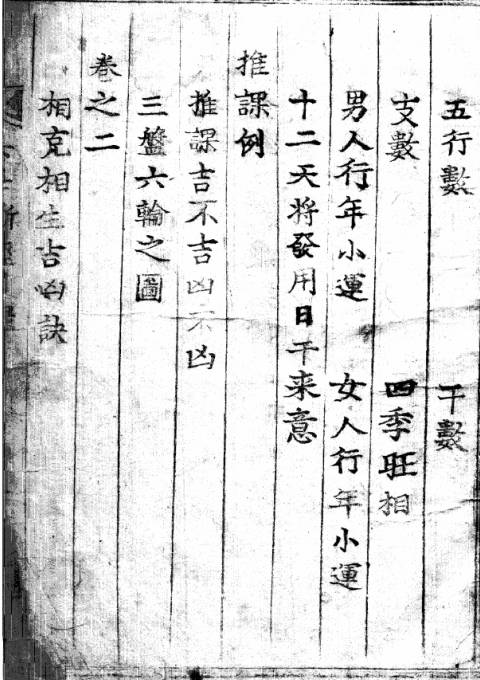 五行數 干數
支數 四季旺相
男人行年小運 女人行年小運
十二天将發用日干来意
推課例
推課吉不吉凶不凶
三盤六輪之圖
卷之二
相克相生吉凶訣